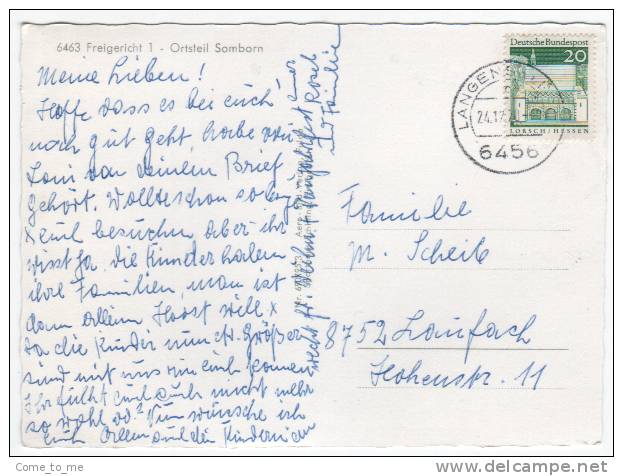 6463 Freigericht 1 - Ortsteil Somborn
Meine Lieben!
Hoffe dass es bei euch
noch gut geht, habe von
Loni von deinem Brief
gehört. Wollte schon so lange
x euch besuchen aber ihr
wisst ja die Kinder haben
ihre Familien, man ist
dann allein Horst will x
da die Kinder nun Größer
sind mit uns zu euch kommen
Ihr fühlt euch auch nicht mehr
so wohl od.? Nun wünsche ich
euch Allen auch den Kindern ein
recht fr. Weihnachtsfest
u Familie
Deutsche Bundespost
20
LORSCH/HESSEN
LANGENS
24.12.70
6456
Familie
M. Scheib
8752 Laufach
Hohenstr. 11
Come_to_me
delcampe.net